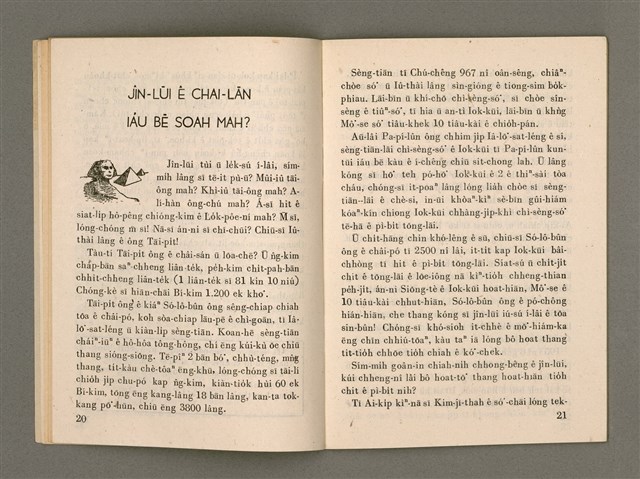 JÎN-LŪI Ê CHAI-LĀN
IÁU BĒ SOAH MAH?
Jîn-lūi tùi ū le̍k-sú í-lâi, sím-
mih lâng sī tē-it pù-ū? Mûi-iû tāi-
ông mah? Khì-iû tāi-ông mah? A-
lí-hàn ông-chú mah? Á-sī hit ê
siat-li̍p hó-pêng chióng-kim ê Lo̍k-pōe-ní mah? M̄ sī,
lóng-chóng m̄ sī! Nā-sī án-ni sī chī-chúi? Chiū-sī Iû-
thài lâng ê ông Tāi-pit!
Tàu-tí Tāi-pit ông ê châi-sán ū lōa-chē? Ū n̂g-kim
cha̍p-bān saⁿ-chheng liân-tek, pe̍h-kim chit-pah-bān
chhit-chheng liân-tek (1 liân-tek sī 81 kin 10 niú)
Chóng-kè sī hiān-chāi Bí-kim 1.200 ek kho͘.
Tāi-pit ông ê kiáⁿ Só-lô-bûn ông sêng-chiap chiah
tōa ê châi-pó, koh sòa-chiap lāu-pē ê chì-goān, tī Iâ-
lō͘-sat-léng ū kiàn-li̍p sèng-tiān. Koan-hē sèng-tiān
chāiⁿ-iūⁿ ê hô-hôa tông-hông, chī éng kúi-kù ōe chiū
thang sióng-siōng. Tē-pîⁿ 2 bān bō͘, chhù-téng, mn̂g
thang, tit-kàu chè-tôaⁿ ēng-khū, lóng-chóng sī tāi-lí
chio̍h ji̍p chu-pó kap n̂g-kim, kiàn-tio̍k húi 60 ek
Bí-kim, tông ēng kang-lâng 18 bān lâng, kan-ta tok-
kang pō͘-hūn, chiū ēng 3800 lâng.
20
Sèng-tiān tī Chú-chêng 967 nî oân-sêng, chiâⁿ-
chòe só͘ ū Iû-thài lâng sìn-gióng ê tiong-sim bo̍k-
phiau. Lāi-bīn ū khì-chō chì-sèng-só͘, sī chòe sîn-
sèng ê tiûⁿ-só͘, tī hia ū an-tì Iok-kūi, lāi-bīn ū khǹg
Mô͘-se só͘ tiâu-khek 10 tiâu-kài ê chio̍h-pán.
Aū-lâi Pa-pí-lûn ông chhim ji̍p Iâ-lō͘-sat-léng ê sî,
sèng-tiān-lāi chì-sèng-só͘ ê Iok-kūi tī Pa-pí-lûn kun-
tūi iáu bē kàu ê í-chêng chiū sit-chong lah. Ū lâng
kóng sī hō͘ teh pó-hō͘ Iok-kūi ê 2 ê thiⁿ-sài tòa
cháu, chóng-sī it-poaⁿ lâng lóng liáh chòe sī sèng-
tiān-lāi ê chè-si, in-ūi khòaⁿ-kìⁿ sê-bîn gûi-hiám
kóaⁿ-kín chiong Iok-kūi chhàng-ji̍p-khì chì-sèng-só͘
tē-hā ê pì-bi̍t tōng-lāi.
Ū chit-hāng chin khó-lêng ê sū, chiū-sī Só-lô-bûn
ông ê châi-pó tī 2500 nî lâi, it-tit kap Iok-kūi bâi-
chhòng tī hit ê pì-bi̍t tōng-lāi. Siat-sú ū chi̍t-ji̍t
chit ê tōng-lāi ê lōe-iông nā kìⁿ-tio̍h chheng-thian
pe̍h-ji̍t, án-ni Siōng-tè ê Iok-kūi hoat-hiān, Mô͘-se ê
10 tiâu-kài chhut-hiān, Só-lô-bûn ông ê pó-chông
hiān-hiān, che thang kóng sī jîn-lūi iú-sú í-lâi ê tōa
sin-bûn! Chóng-sī khó-sioh it-chhè ê mō͘-hiám-ka
ēng chīn chhiú-tōaⁿ, kàu taⁿ iá lóng bô hoat thang
tit-tio̍h chhōe tio̍h chiah ê kó͘-chek.
Sim-mih goân-in chiah-nih chhong-bêng ê jîn-lūi,
kúi chheng-nî lâi bô hoat-tō͘ thang hoat-hiān tio̍h
chit ê pì-bi̍t tōng-lāi?
Tī Ai-ki̍p kìⁿ-nā sī Kim-jī-thah ê só͘-chāi lóng tek-
21